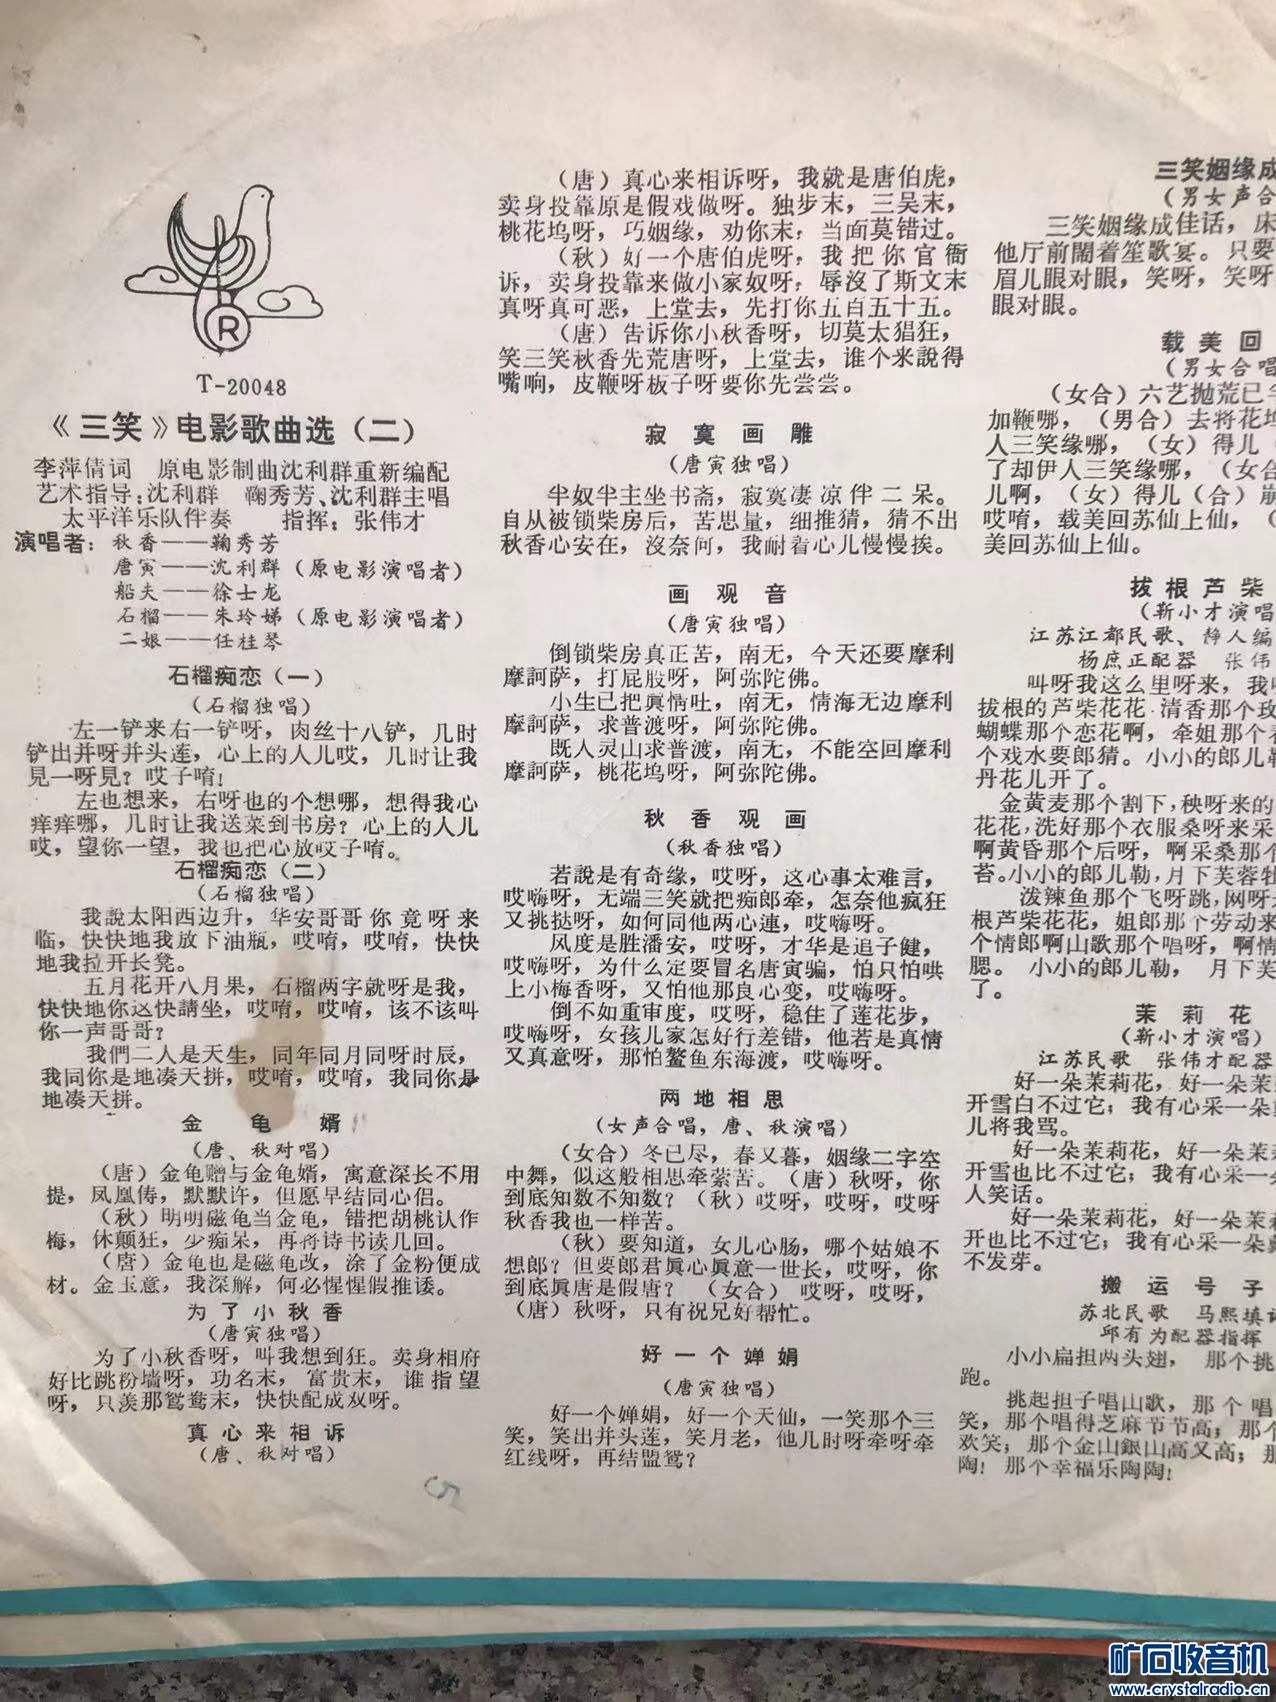 R
T-20048
《三笑》电影歌曲选（二）
李萍倩词　原电影制曲沈利群重新编配
艺术指导:沈利群　鞠秀芳、沈利群主唱
太平洋乐队伴奏　　指挥：张伟才
演唱者：秋香——鞠秀芳
唐寅——沈利群（原电影演唱者）
船夫——徐士龙
石榴——朱玲娣（原电影演唱者）
二娘——任桂琴
石榴痴恋（一）
（石榴独唱）
左一铲来右一铲呀，肉丝十八铲，几时
铲出并呀并头莲，心上的人儿哎，几时让我
見一呀見？哎子唷！
左也想来，右呀也的个想哪，想得我心
痒痒哪，几时让我送菜到书房？心上的人儿
哎，望你一望，我也把心放哎子唷。
石榴痴恋（二）
（石榴独唱）
我說太阳西边升，华安哥哥你竟呀来
临，快快地我放下油瓶，哎唷，哎唷，快快
地我拉开长凳。
五月花开八月果，石榴两字就呀是我，
快快地你这快請坐，哎唷，哎唷，该不该叫
你一声哥哥？
我們二人是天生，同年同月同呀时辰，
我同你是地凑天拼，哎唷，哎唷，我同你是
地凑天拼。
金龟婿
（唐、秋对唱）
（唐）金龟赠与金龟婿，寓意深长不用
提，凤凰俦，默默许，但愿早结同心侣。
（秋）明明磁龟当金龟，错把胡桃认作
梅，休颠狂，少痴呆，再将诗书读几回。
（唐）金龟也是磁龟改，涂了金粉便成
材。金玉意，我深解，何必惺惺假推诿。
为了小秋香
（唐寅独唱）
为了小秋香呀，叫我想到狂。卖身相府
好比跳粉墙呀，功名末，富贵末，谁指望
呀，只羡那鸳鸯末，快快配成双呀。
真心来相诉
（唐、秋对唱）
5
（唐）真心来相诉呀，我就是唐伯虎，
卖身投靠原是假戏做呀。独步末，三吴末，
桃花坞呀，巧姻缘，劝你末：当面莫错过。
（秋）好一个唐伯虎呀，我把你官衙
诉，卖身投靠来做小家奴呀：辱沒了斯文末
真呀真可恶，上堂去，先打你五百五十五。
（唐）告诉你小秋香呀，切莫太猖狂，
笑三笑秋香先荒唐呀，上堂去，谁个来說得
嘴响，皮鞭呀板子呀要你先尝尝。
寂寞画雕
（唐寅独唱）
半奴半主坐书斋，寂寞凄凉伴二呆。
自从被锁柴房后，苦思量，细推猜，猜不出
秋香心安在，沒奈何，我耐着心儿慢慢挨。
画观音
（唐寅独唱）
倒锁柴房真正苦，南无，今天还要摩利
摩訶萨，打屁股呀，阿弥陀佛。
小生已把眞情吐，南无，情海无边摩利
摩訶萨，求普渡呀，阿弥陀佛。
既人灵山求普渡，南无，不能空回摩利
摩訶萨，桃花坞呀，阿弥陀佛。
秋香观画
（秋香独唱）
若說是有奇缘，哎呀，这心事太难言，
哎嗨呀，无端三笑就把痴郎牵，怎奈他疯狂
又挑挞呀，如何同他两心連，哎嗨呀。
风度是胜潘安，哎呀，才华是追子健，
哎嗨呀，为什么定要冒名唐寅骗，怕只怕哄
上小梅香呀，又怕他那良心变，哎嗨呀。
倒不如重审度，哎呀，稳住了莲花步，
哎嗨呀，女孩儿家怎好行差错，他若是真情
又真意呀，那怕鳌鱼东海渡，哎嗨呀。
两地相思
（女声合唱，唐、秋演唱）
（女合）冬已尽，春又暮，姻缘二字空
中舞，似这般相思牵萦苦。（唐）秋呀，你
到底知数不知数？（秋）哎呀，哎呀，哎呀
秋香我也一样苦。
（秋）要知道，女儿心肠，哪个姑娘不
想郎？但要郎君眞心眞意一世长，哎呀，你
到底眞唐是假唐？（女合）哎呀，哎呀，
（唐）秋呀，只有祝兄好帮忙。
好一个婵娟
（唐寅独唱）
好一个婵娟，好一个天仙，一笑那个三
笑，笑出并头莲，笑月老，他几时呀牵呀牵
红线呀，再结盟鸳？
三笑姻缘成
（男女声合
三笑姻缘成佳话，床
他厅前鬧着笙歌宴。只要
眉儿眼对眼，笑呀，笑呀
眼对眼。
载美回
（男女合唱
（女合）六艺抛荒已
加鞭哪，（男合）去将花坞
人三笑缘哪，（女）得儿
了却伊人三笑缘哪，（女合
儿啊，（女）得儿（合）崩
哎唷，载美回苏仙上仙，
美回苏仙上仙。
拔根芦柴
（靳小才演唱
江苏江都民歌、静人编
杨庶正配器　张伟
叫呀我这么里呀来，我
拔根的芦柴花花 清香那个玫
蝴蝶那个恋花啊，牵姐那个
个戏水要郎猜。小小的郎儿
丹花儿开了。
金黄麦那个割下，秧呀来的
花花，洗好那个衣服桑呀来采
啊黄昏那个后呀，啊采桑那个
苔。小小的郎儿勒，月下芙蓉牡
泼辣鱼那个飞呀跳，网呀
根芦柴花花，姐郎那个劳动来
个情郎啊山歌那个唱呀，啊情
腮。 小小的郎儿勒， 月下芙
了。
茉莉花
（靳小才演唱）
江苏民歌　张伟才配器
好一朵茉莉花，好一朵茉
开雪白不过它；我有心采一朵
儿将我骂。
好一朵茉莉花，好一朵茉莉
开雪也比不过它；我有心采一朵
人笑话。
好一朵茉莉花，好一朵茉莉
开也比不过它；我有心采一朵
不发芽。
搬运号子
苏北民歌　马熙填词
邱有为配器指挥
小小扁担两头翅， 那个挑
跑。
挑起担子唱山歌，那个唱
笑，那个唱得芝麻节节高；那个
欢笑；那个金山銀山高又高；那
陶！那个幸福乐陶陶！
矿石收音机
www.crystalradio.cn